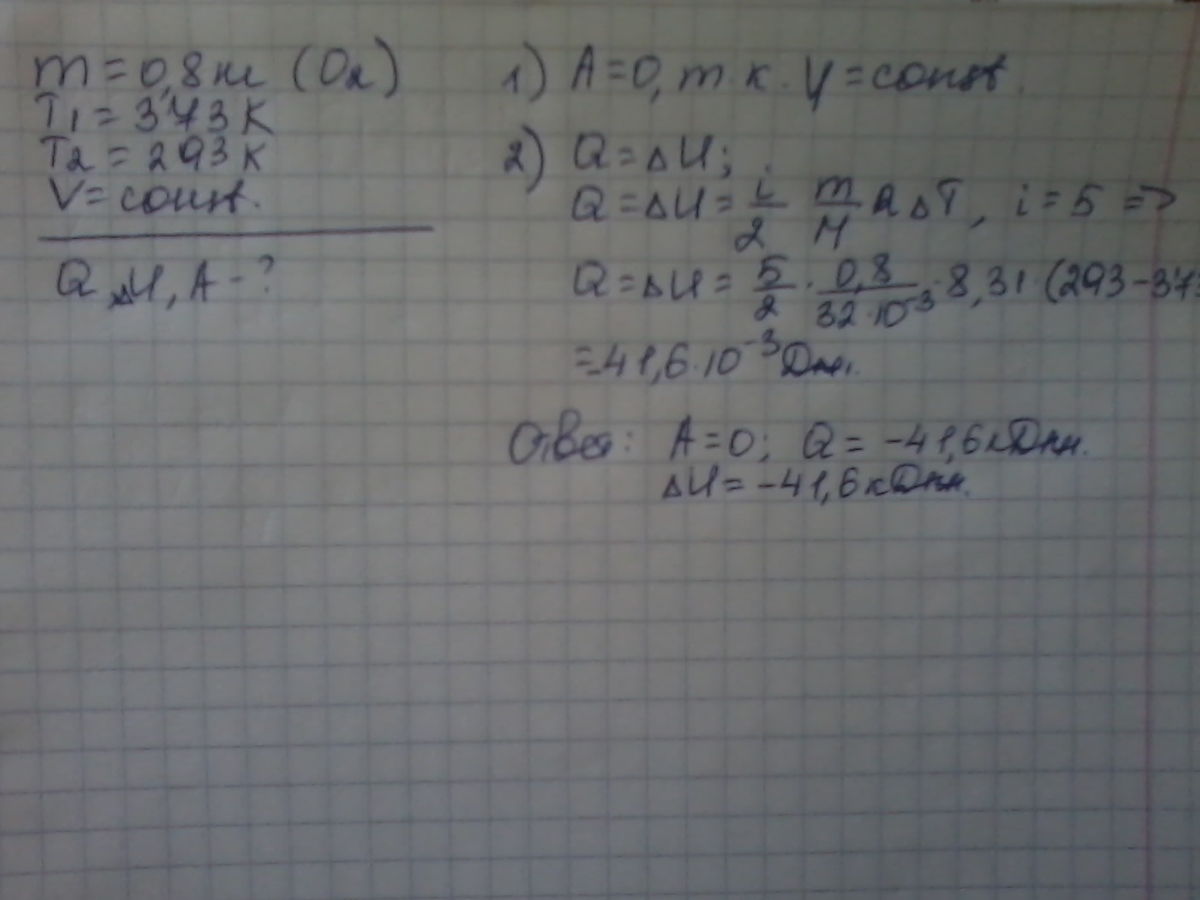 m = 0,8 кг (O₂)
T₁ = 373 K
T₂ = 293 K
V = const.
Q, ΔU, A - ?
1) A = 0, т.к. V = const.
2) Q = ΔU;
Q = ΔU = i/2 m/M R ΔT, i = 5 =>
Q = ΔU = 5/2 · 0,8/32·10⁻³ · 8,31 · (293 - 373
= -41,6 · 10⁻³ Дж.
Ответ: A = 0; Q = -41,6 кДж.
ΔU = -41,6 кДж.